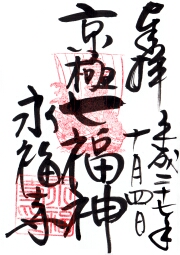 奉拝
平成二十七年
十月四日
京極七福神
永福寺